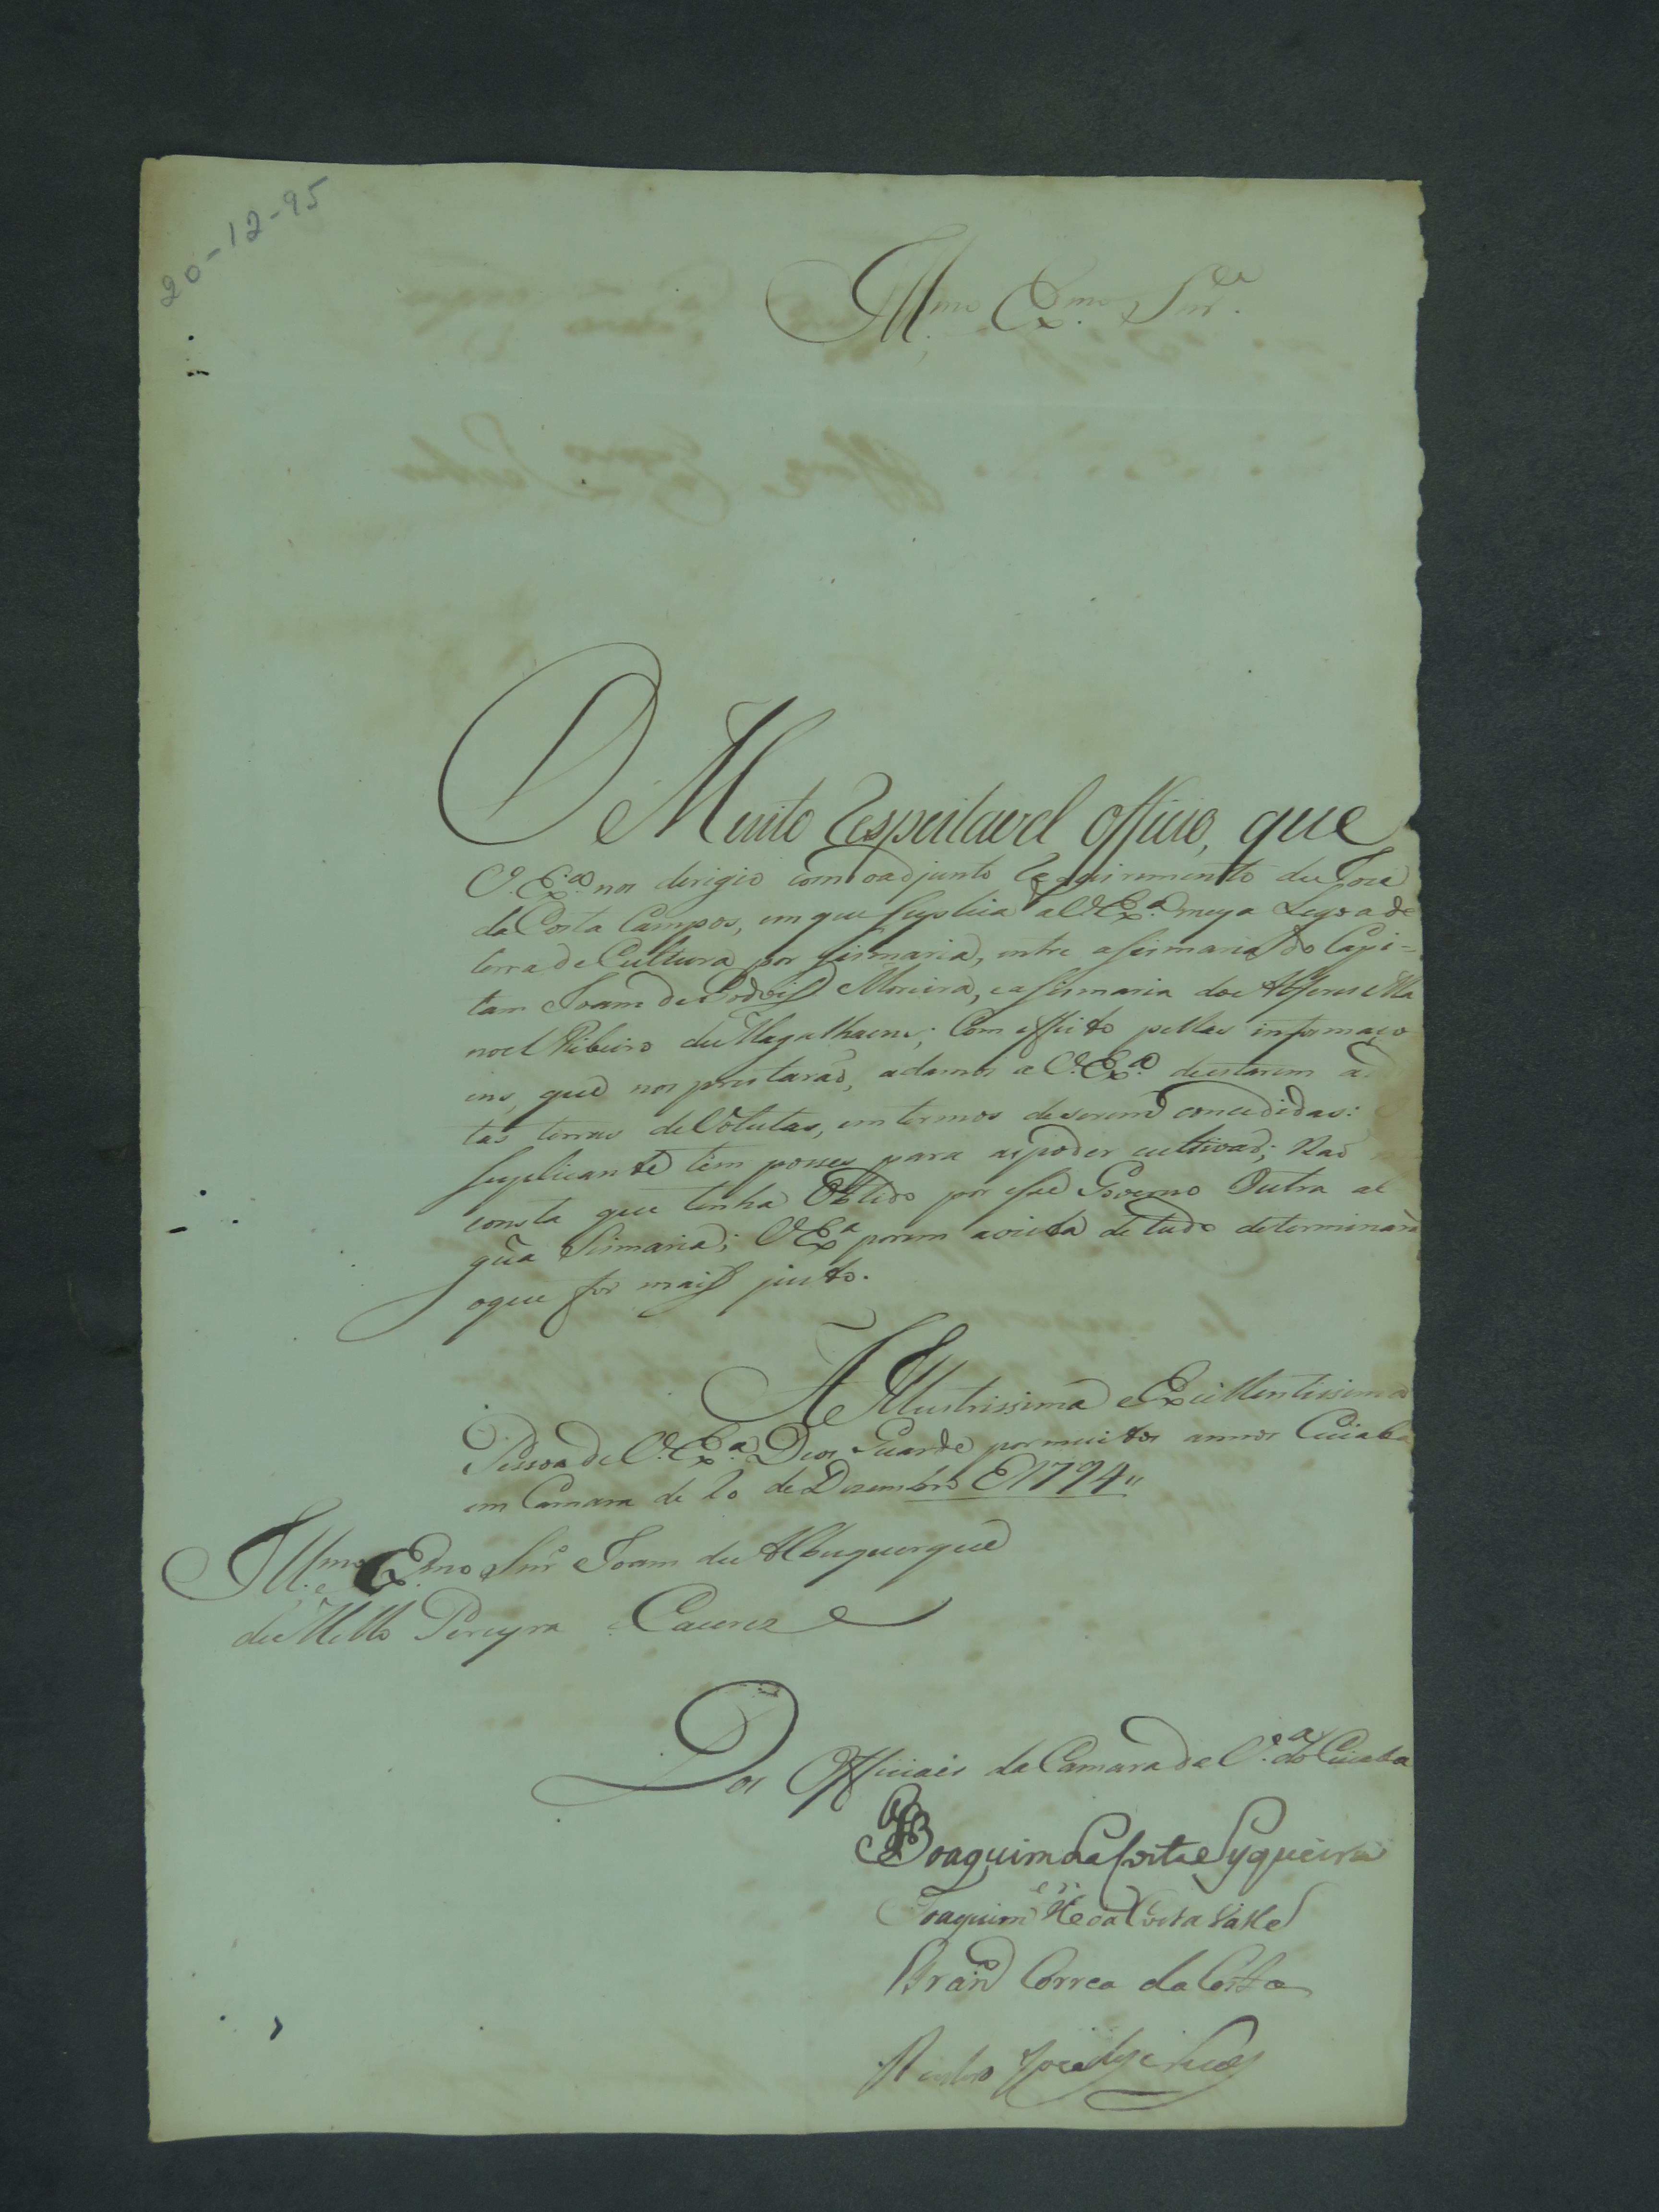 20-12-95
Ill.mo Ex.mo Snr.
O Muito Respeitavel Officio, que
V. Ex.a nos dirigio com o adjunto Requirimento de Joze
da Costa Campos, em que suplica a V. Ex.a meya Legoa de
terra de Cultura por sismaria, entre a sismaria do Capi=
tam Joam de Moreira, e a sismaria do Alferes Ma
noel Ribeiro de Magalhaens; Com effeito pellas informaço
ens, que nos prestaraõ, achamos a V. Ex.a de estarem as
tas terras de Volutas, em termos de serem concedidas:
suplicante tem posses para as poder cultivar; Naõ
consta que tenha Obtido por esse Governo Outra al
guã Sismaria; V Ex.a porem avista de tudo determinará
o que for mais justo.
A Illustrissima e Excellentissima
Pessoa de V. Ex.a Deos Guarde por muitos annos Cuiaba
em Camara de 20 de Dezembro E 1794"
Ill.mo e Ex.mo Snr. Joam de Albuquerque
de Mello Pereyra e Caceres
Dos Officiais da Camara da V.a do Cuiaba
Joaquim da Costa Syqueira
Joaquim da Costa
Correa da Costa
Joze